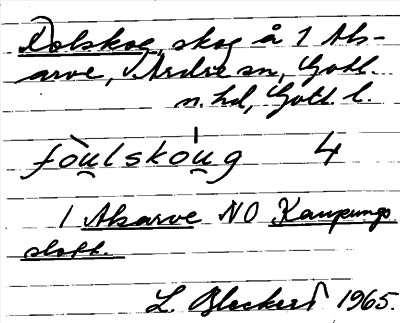 Dolskog, skog å 1 Ak-
arve, Ardre sn, Gotl.
n. hd, Gotl. l.
fòu̯lskòu̯g 4
1 Akarve NO Kaupungs
slott.
L. Bleckert 1965.